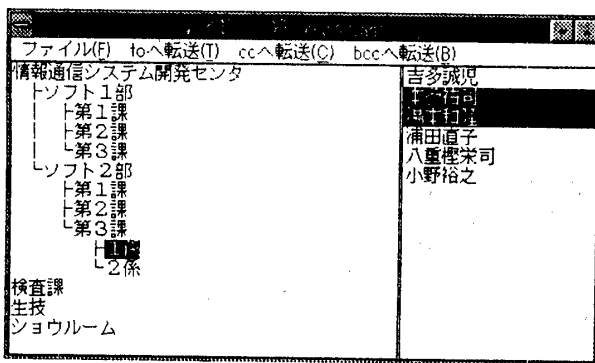 ファイル(F) toへ転送(T) ccへ転送(C) bccへ転送(B)
情報通信システム開発センタ
ソフト1部
第1課
第2課
第3課
ソフト2部
第1課
第2課
第3課
1係
2係
検査課
生技
ショウルーム
吉多誠児
浦田直子
八重樫栄司
小野裕之